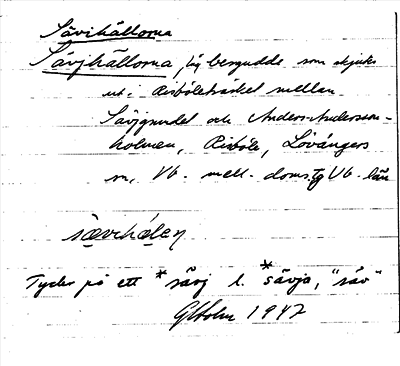 Sävihällorna
Sävjhällorna, låg bergudde som skjuter
ut i Risböleträsket mellan
Sävjgrundet och Anders-Andersson-
holmen, Risböle, Lövångers
sn, Vb. mell. doms. Vb. län
sævihälen
Tyder på ett *sävj l. *sävja, "säv"
GHolm 1947